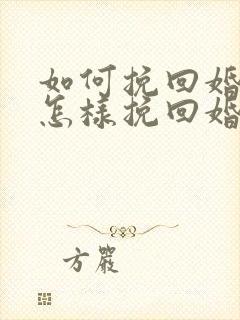 如何挽回婚
怎样挽回婚
方严